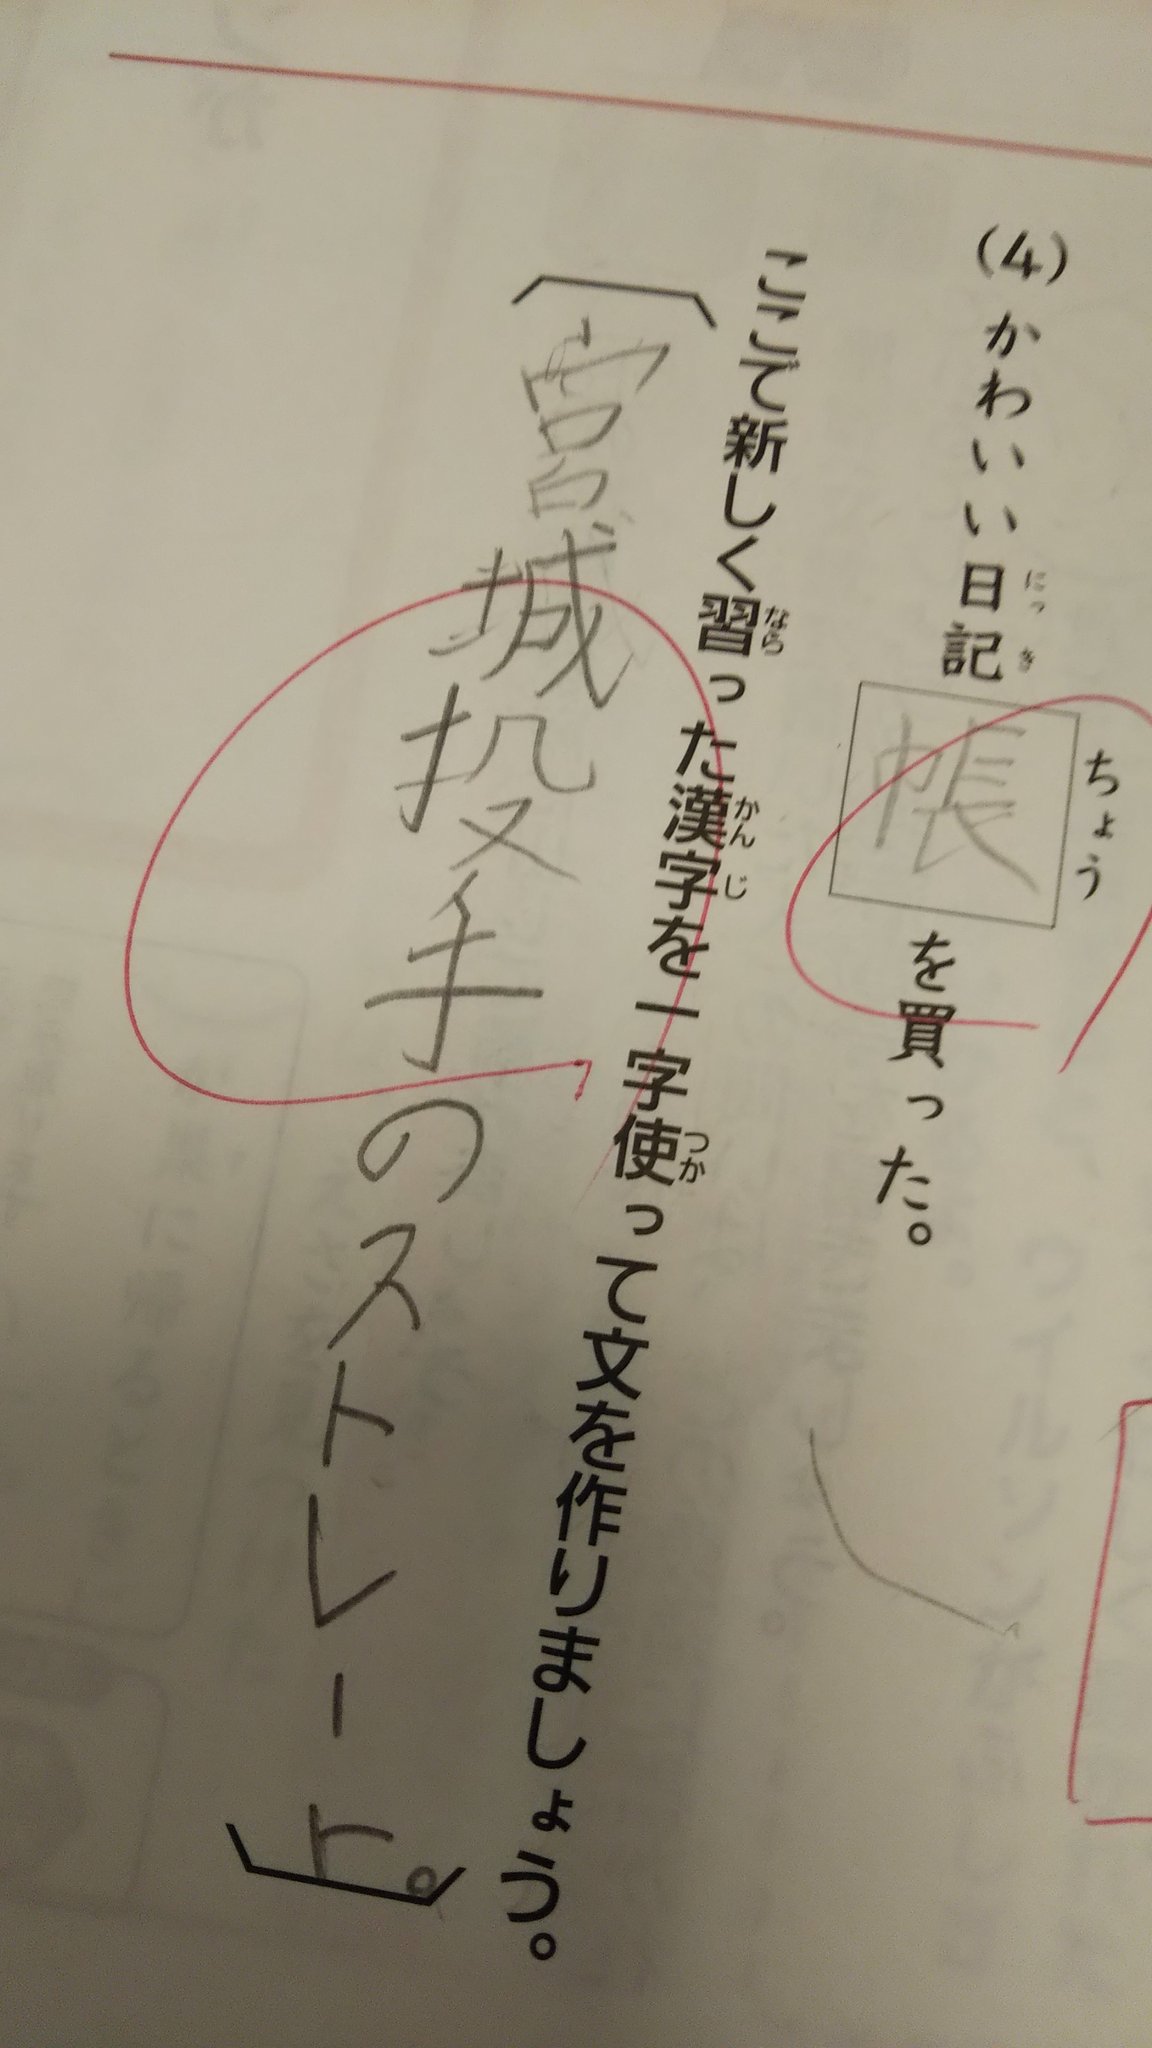 (4)かわいい日記帳を買った。
にっき
ちょう
ここで新しく習った漢字を一字使って文を作りましょう。
なら
かん
じ
つか
宮城投手のストレート。